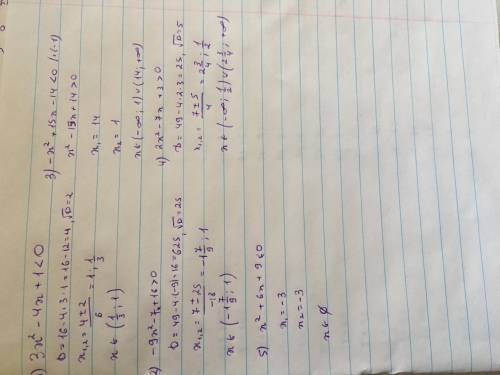 1) 3x² - 4x + 1 < 0
D = 16 - 4·3·1 = 16 - 12 = 4, √D = 2
x₁,₂ = (4 ± 2)/6 = 1, 1/3
x ∈ (1/3; 1)
2) -9x² - 7x + 16 > 0
D = 49 - 4·(-9)·16 = 625, √D = 25
x₁,₂ = (7 ± 25)/-18 = -1 7/9; 1
x ∈ (-1 7/9; 1)
5) x² + 6x + 9 ≤ 0
x₁ = -3
x₂ = -3
x ∈ ∅
3) -x² + 15x - 14 < 0 |·(-1)
x² - 15x + 14 > 0
x₁ = 14
x₂ = 1
x ∈ (-∞; 1) ∪ (14; +∞)
4) 2x² - 7x + 3 > 0
D = 49 - 4·2·3 = 25, √D = 5
x₁,₂ = (7 ± 5)/4 = 2 3/4; 1/2
x ∈ (-∞; 1/2) ∪ (2 3/4; +∞)